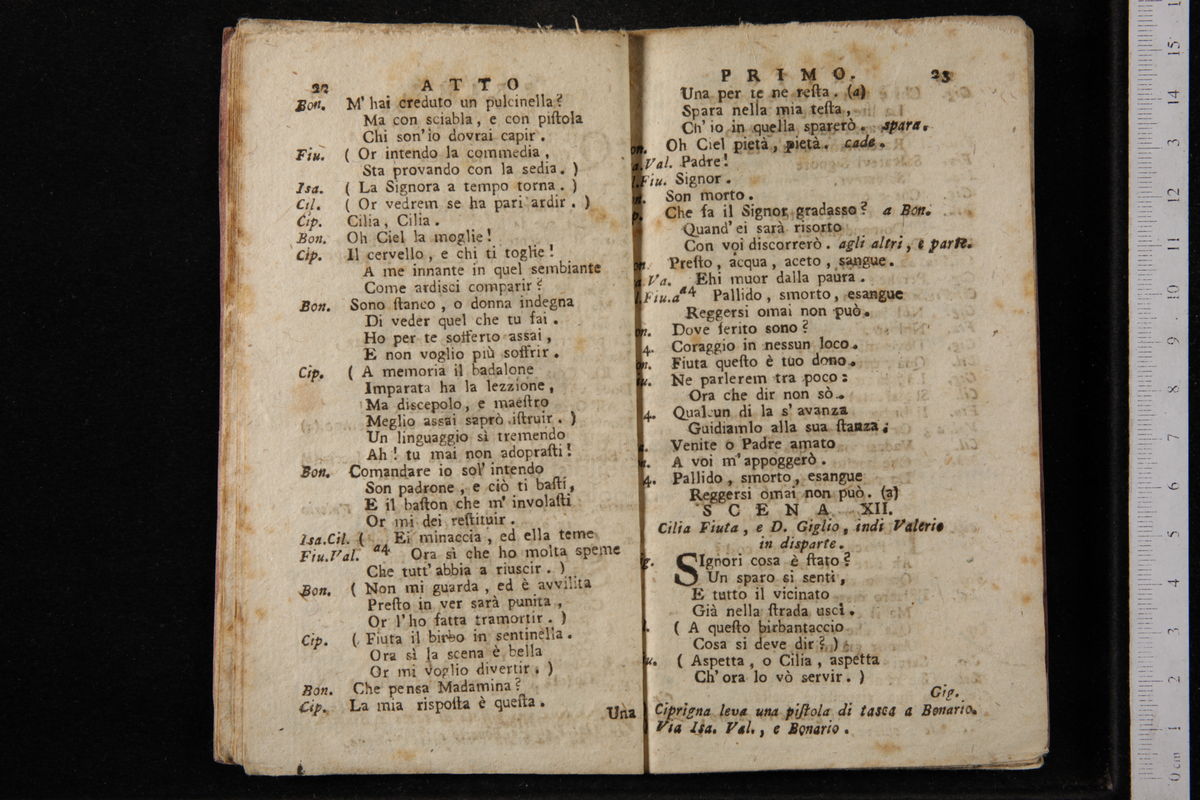 22 ATTO
Bon. M' hai creduto un pulcinella?
Ma con sciabla, e con piſtola
Chi son' io dovrai capir.
Fiu. ( Or intendo la commedia,
Sta provando con la sedia. )
Isa. ( La Signora a tempo torna. )
Cil. ( Or vedrem se ha pari ardir. )
Cip. Cilia, Cilia.
Bon. Oh Ciel la moglie!
Cip. Il cervello, e chi ti toglie!
A me innante in quel sembiante
Come ardisci comparir?
Bon. Sono ſtanco, o donna indegna
Di veder quel che tu fai.
Ho per te sofferto assai,
E non voglio più soffrir.
Cip. ( A memoria il badalone
Imparata ha la lezzione,
Ma discepolo, e maeſtro
Meglio assai saprò iſtruir. )
Un linguaggio sì tremendo
Ah! tu mai non adopraſti!
Bon. Comandare io sol' intendo
Son padrone, e ciò ti baſti,
E il baſton che m' involaſti
Or mi dei reſtituir.
Isa.Cil. ( Ei minaccia, ed ella teme
Fiu.Val. a4 Ora sì che ho molta speme
Che tutt' abbia a riuscir. )
Bon. ( Non mi guarda, ed è avvilita
Preſto in ver sarà punita,
Or l' ho fatta tramortir. )
Cip. ( Fiuta il birbo in sentinella.
Ora sì la scena è bella
Or mi voglio divertir. )
Bon. Che pensa Madamina?
Cip. La mia risposta è queſta.
Una
PRIMO. 23
Una per te ne reſta. (a)
Spara nella mia teſta,
Ch' io in quella sparerò. spara.
on. Oh Ciel pietà, pietà. cade.
a.Val. Padre!
l.Fiu. Signor.
n. Son morto.
p. Che fa il Signor gradasso? a Bon.
Quand' ei sarà risorto
Con voi discorrerò. agli altri, e parte.
on. Preſto, acqua, aceto, sangue.
a.Va. Ehi muor dalla paura.
l.Fiu.a a4 Pallido, smorto, esangue
Reggersi omai non può.
on. Dove ferito sono?
4. Coraggio in nessun loco.
on. Fiuta queſto è tuo dono.
iu. Ne parlerem tra poco:
Ora che dir non sò.
4. Qualcun di la s' avanza
Guidiamlo alla sua ſtanza;
Venite o Padre amato
n. A voi m' appoggerò.
4. Pallido, smorto, esangue
Reggersi omai non può. (a)
SCENA XII.
Cilia Fiuta, e D. Giglio, indi Valerio
in disparte.
g. SIgnori cosa è ſtato?
Un sparo si sentì,
E tutto il vicinato
Già nella ſtrada uscì.
l. ( A queſto birbantaccio
Cosa si deve dir? )
iu. ( Aspetta, o Cilia, aspetta
Ch' ora lo vò servir. )
Gig.
Ciprigna leva una piſtola di tasca a Bonario.
Via Isa. Val., e Bonario.
0 cm 1 2 3 4 5 6 7 8 9 10 11 12 13 14 15